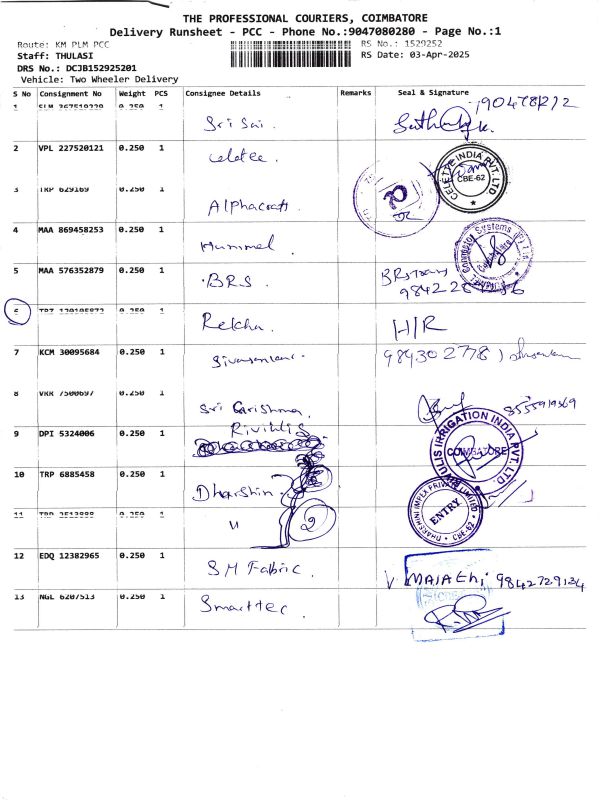 THE PROFESSIONAL COURIERS, COIMBATORE
Delivery Runsheet - PCC - Phone No.:9047080280 - Page No.:1
Route: KM PLM PCC RS No.: 1529252
Staff: THULASI RS Date: 03-Apr-2025
DRS No.: DCJB152925201
Vehicle: Two Wheeler Delivery
S No Consignment No Weight PCS Consignee Details Remarks Seal & Signature
1 0.250 1 Sri Sai.
2 VPL 227520121 0.250 1 CELETTE INDIA PVT. LTD CBE-62
3 TRP 629169 0.250 1 Alphacraft.
4 MAA 869458253 0.250 1 Hummel.
5 MAA 576352879 0.250 1 BRS.
6 0.250 1 Rekha. H/R
7 KCM 30095684 0.250 1
8 VRR 7500697 0.250 1 Sri Garishma.
9 DPI 5324006 0.250 1 Rivulis RIVULIS IRRIGATION INDIA PVT. LTD. COIMBATORE
10 TRP 6885458 0.250 1 Dharshini
11 0.250 1 " 2 DHARESHINI IMPEX PRIVATE LIMITED ENTRY CBE-62
12 EDQ 12382965 0.250 1 SM Fabric. 9842729134
13 NGL 6207513 0.250 1 Smarttec